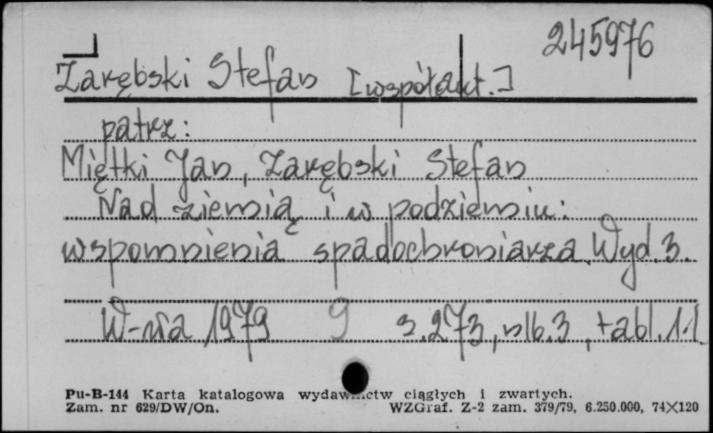 245976
Zarębski Stefan [współaut.]
patrz:
Miętki Jan, Zarębski Stefan
Nad ziemią i w podziemiu:
wspomnienia spadochroniarza. Wyd. 3.
W-wa 1979 9 s. 273, nlb. 3, tabl. 1.
Pu-B-144 Karta katalogowa wydawnictw ciągłych i zwartych.
Zam. nr 629/DW/On. WZGraf. Z-2 zam. 379/79, 6.250.000, 74×120